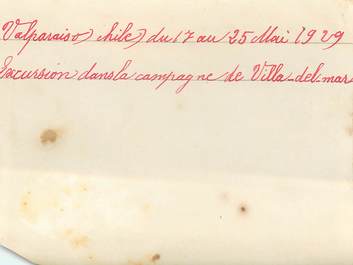 Valparaiso) chile) du 17 au 25 Mai 1929
Excursion dans la campagne de Villa-del-mar